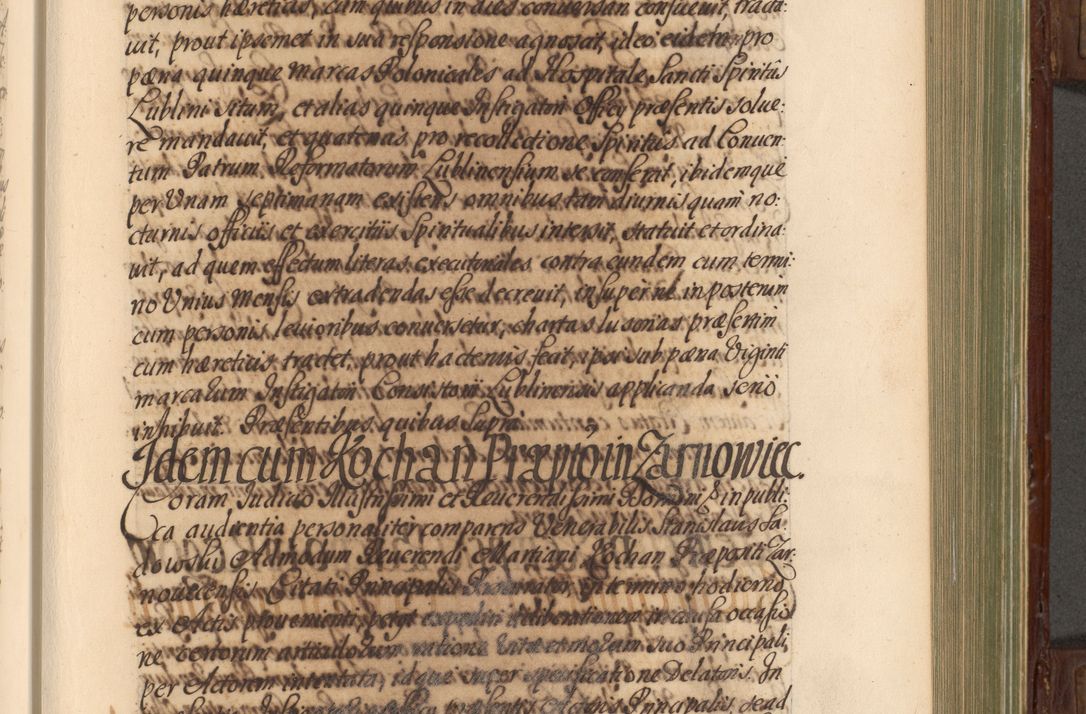 personis hæreticis, cum quibus in dies conversari consuevit, tracta-
vit, prout ipsemet in sua responsione agnoscit, ideo eidem pro
pœna quinque marcas Polonicales ad Hospitale Sancti Spiritûs
Lublini situm, et alias quinque Instigatori Officij præsentis solve:
re mandavit, et quatenus pro recollectione Spiritus ad Conven-
tum Patrum Reformatorum Lublinensium se conferat, ibidemque
per Unam septimanam existens omnibus tam diurnis quam no:
cturnis officiis et exercitiis Spiritualibus intersit, statuit et ordina-
vit, ad quem effectum literas executoriales contra eundem cum termi:
no Unius Mensis extradendas esse decrevit, insuper ne in posterum
cum personis levioribus conversetur, chartas lusorias præsertim
cum hæreticis tractet, prout hactenus fecit, ipsi sub pœna Viginti
marcarum Instigatori Consistorii Lublinensis applicanda serio
inhibuit. Præsentibus quibus supra.
Idem cum Kochan Præpto in Zarnowiec.
Coram Judicio Illustrissimi et Reverendissimi Domini in publi:
ca audientia personaliter comparens Venerabilis Stanislaus Sa-
dowski Admodum Reverendi Martiani Kochan Præpositi Zar-
novecensis Citati Principalis Procurator, in termino hodierno
ex Actis provenienti, petijt expediri deliberationem in causa occasio
ne certorum articulorum ratione vitæ et morum suo Principali
per Actorem intentata, idque super specificatione Delatoris. In
præsentis Actoris Principalis, se ad